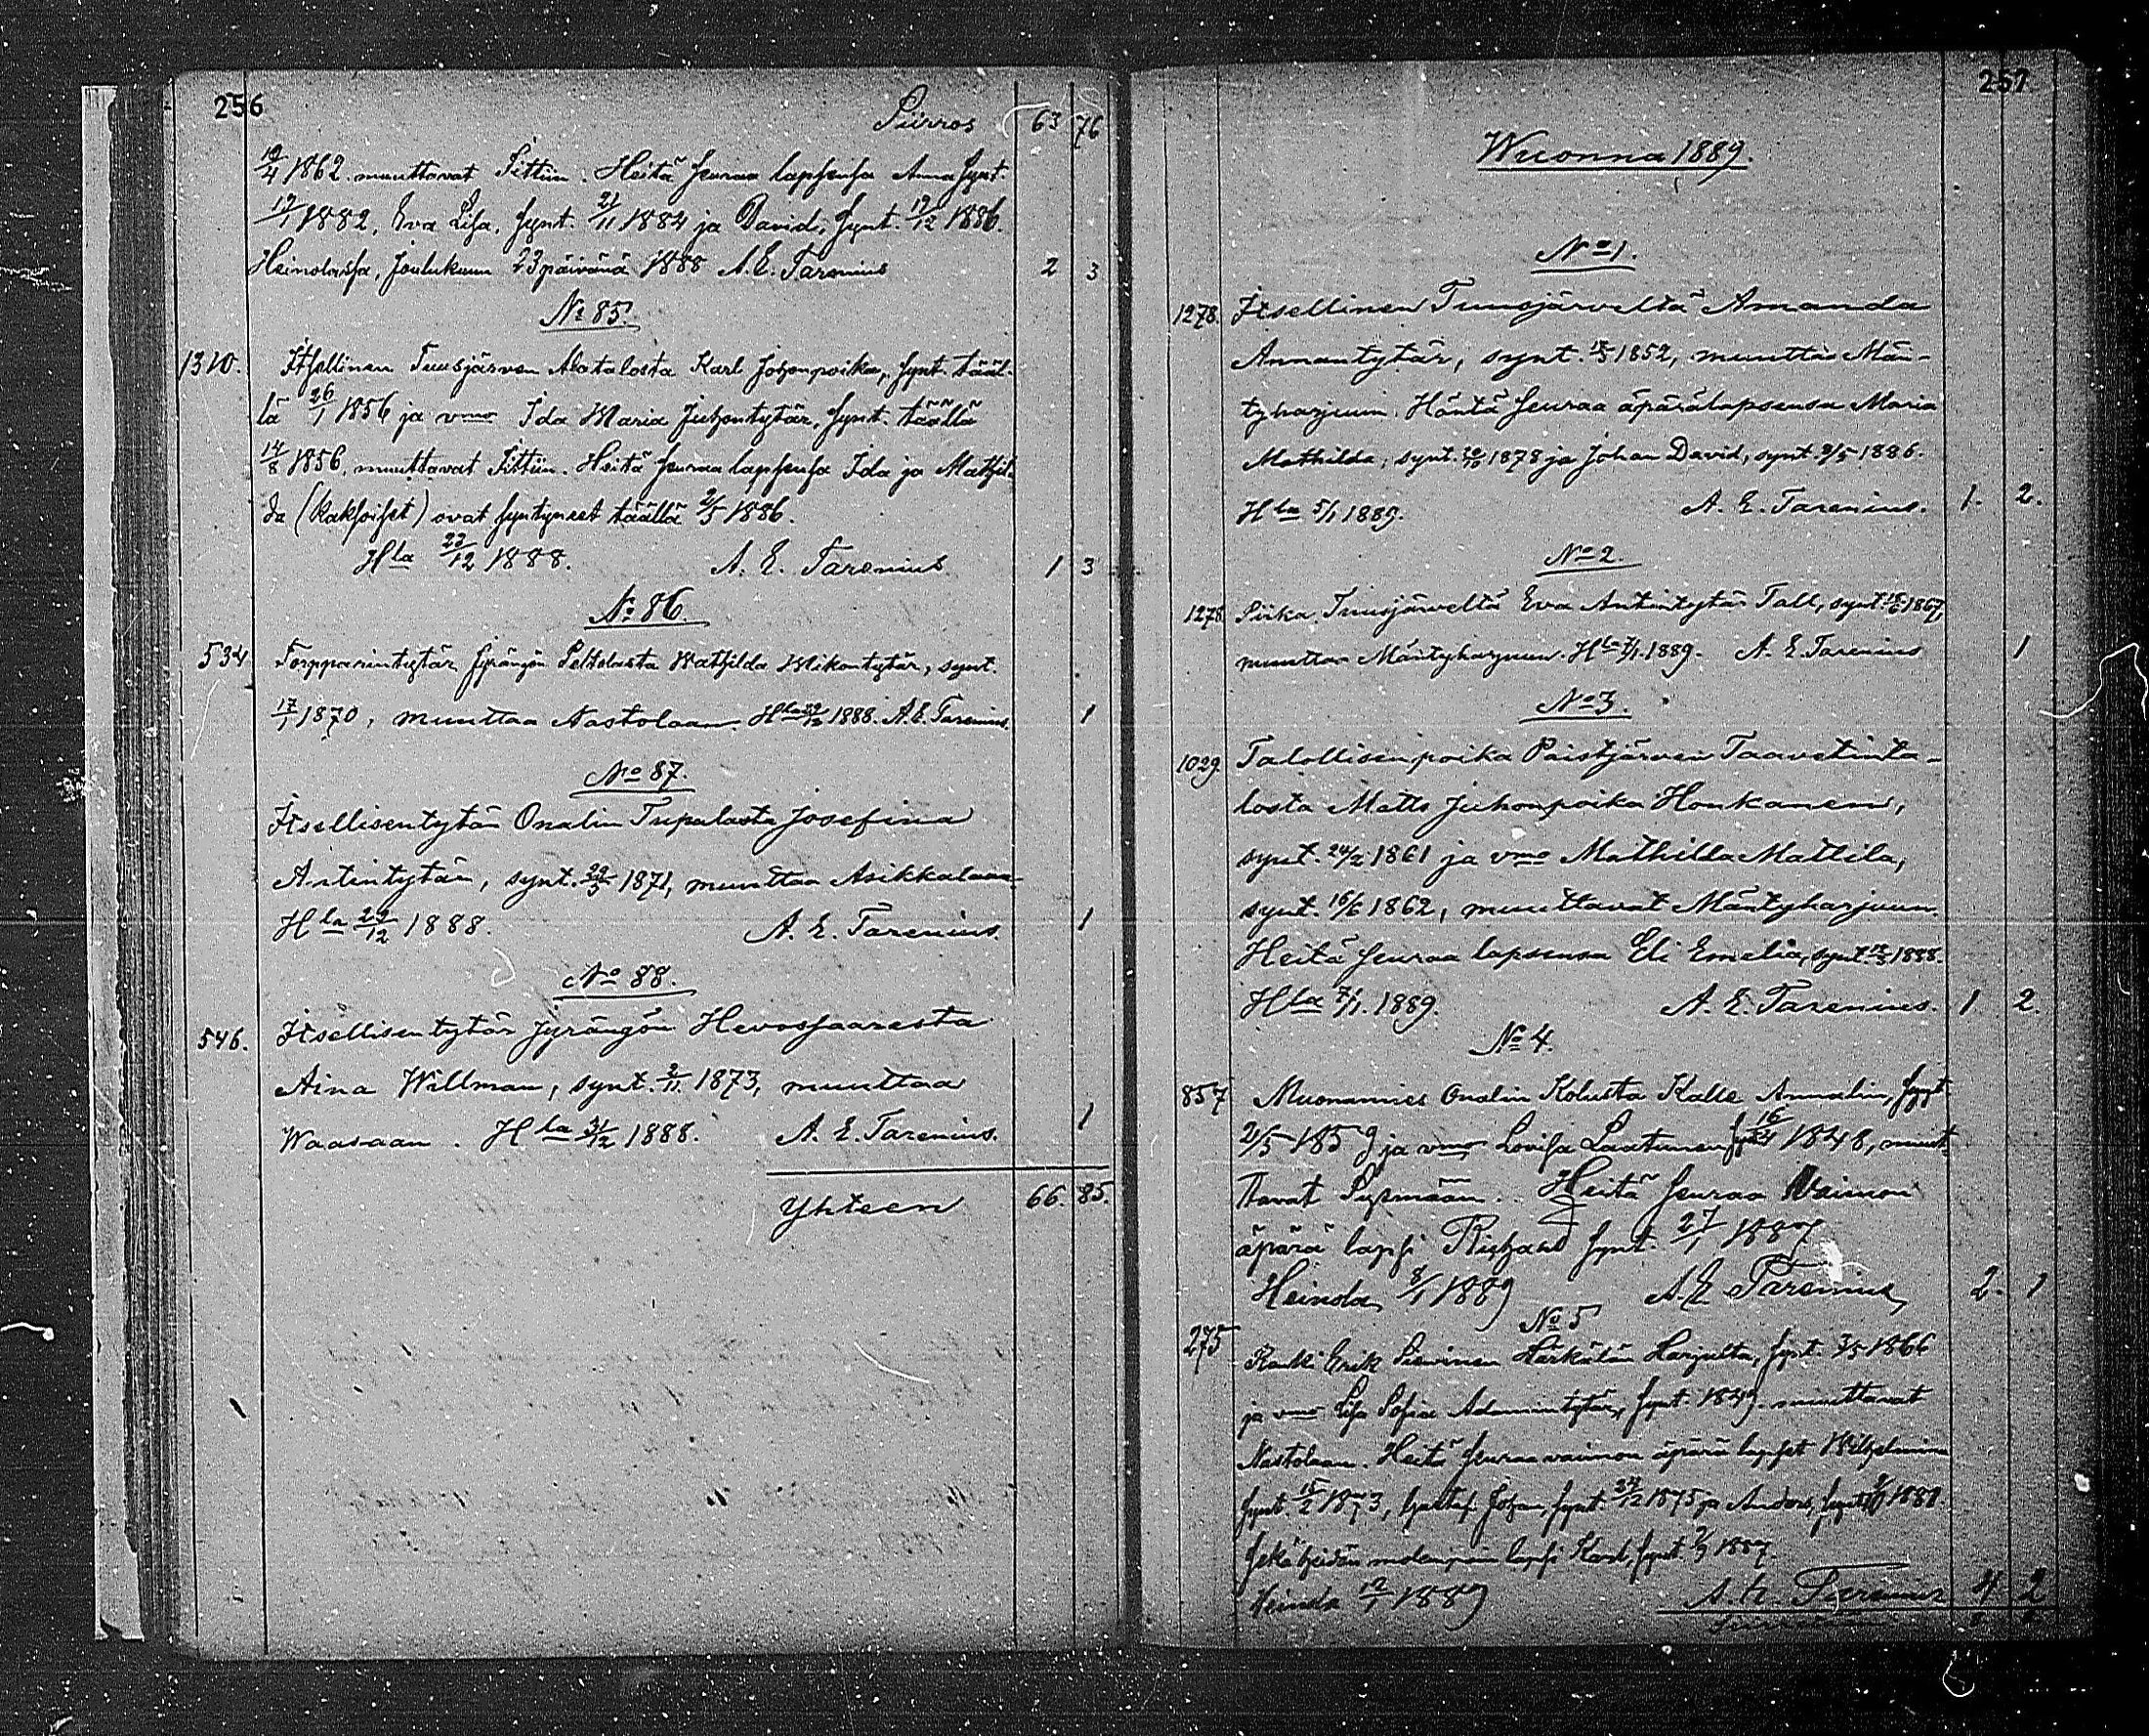 256
Siirros 63 76
19/4 1862 muuttavat Iittiin. Heitä seuraa lapsensa Anna synt.
19/1 1882, Eva Lisa, synt. 21/11 1884 ja David, synt. 19/12 1886.
Heinolassa, Joulukuun 23 päivänä 1888 A. E. Tarenius 2 3
No 85.
1310. Itsellinen Tuusjärven Alatalosta Karl Johonpoika, synt. tääl-
lä 26/1 1856 ja vmo Ida Maria Juhontytär, synt. täällä
14/8 1856, muuttavat Iittiin. Heitä seuraa lapsensa Ida ja Mathil-
da (kaksoiset) ovat syntyneet täällä 2/5 1886.
Hla 23/12 1888. A. E. Tarenius 1 3
No 86.
534 Torpparintytär Jyrängön Peltolasta Mathilda Mikontytär, synt.
17/1 1870, muuttaa Nastolaan. Hla 29/12 1888. A. E. Tarenius. 1
No 87.
Itsellisentytär Onalin Tupalasta Josefina
Antintytär, synt. 22/5 1871, muuttaa Asikkalaan
Hla 29/12 1888. A. E. Tarenius. 1
No 88.
546. Itsellisentytär Jyrängön Hevossaaresta
Aina Willman, synt. 2/11 1873, muuttaa
Waasaan. Hla 31/12 1888. A. E. Tarenius. 1
Yhteen 66. 85.
257
Wuonna 1889.
No 1.
1278. Itsellinen Tuusjärveltä Amanda
Annantytär, synt. 1852, muuttaa Män-
tyharjuun. Häntä seuraa äpärälapsensa Maria
Mathilda, synt. 1878 ja Johan David, synt. 2/5 1886.
Hla 5/1 1889. A. E. Tarenius. 1. 2.
No 2.
1278 Piika Tuusjärveltä Eva Antintytär Tall, synt. 1867
muuttaa Mäntyharjuun. Hla 7/1 1889. A. E. Tarenius 1
No 3.
1029. Talollisenpoika Paistjärven Taavetinta-
losta Matts Juhonpoika Honkanen,
synt. 24/2 1861 ja vmo Mathilda Mattila,
synt. 16/6 1862, muuttavat Mäntyharjuun.
Heitä seuraa lapsensa Eli Emelia, synt. 1888.
Hla 7/1 1889. A. E. Tarenius. 1. 2.
No 4.
857 Muonamies Onalin Kolusta Kalle Annalin, synt.
2/5 1859 ja vmo Lovisa Laatunen synt 16/4 1848, muut-
tavat Sysmään. Heitä seuraa Waimon
äpärä lapsi Richard synt. 27/1 1887
Heinola 8/1 1889 A. E. Tarenius 2. 1
No 5
275 Renki Erik Sievinen Härkälän Harjulta, synt. 3/5 1866
ja vmo Lisa Sofia Adamintytär, synt. 1849 muuttavat
Nastolaan. Heitä seuraa vaimon äpärä lapset Wilhelmina
synt. 15/2 1873, Gustaf Johan, synt 24/12 1875 ja Anders, synt 1881
sekä heidän molempain lapsi Karl, synt. 1887.
Heinola 12/1 1889 A. E. Tarenius 4 2